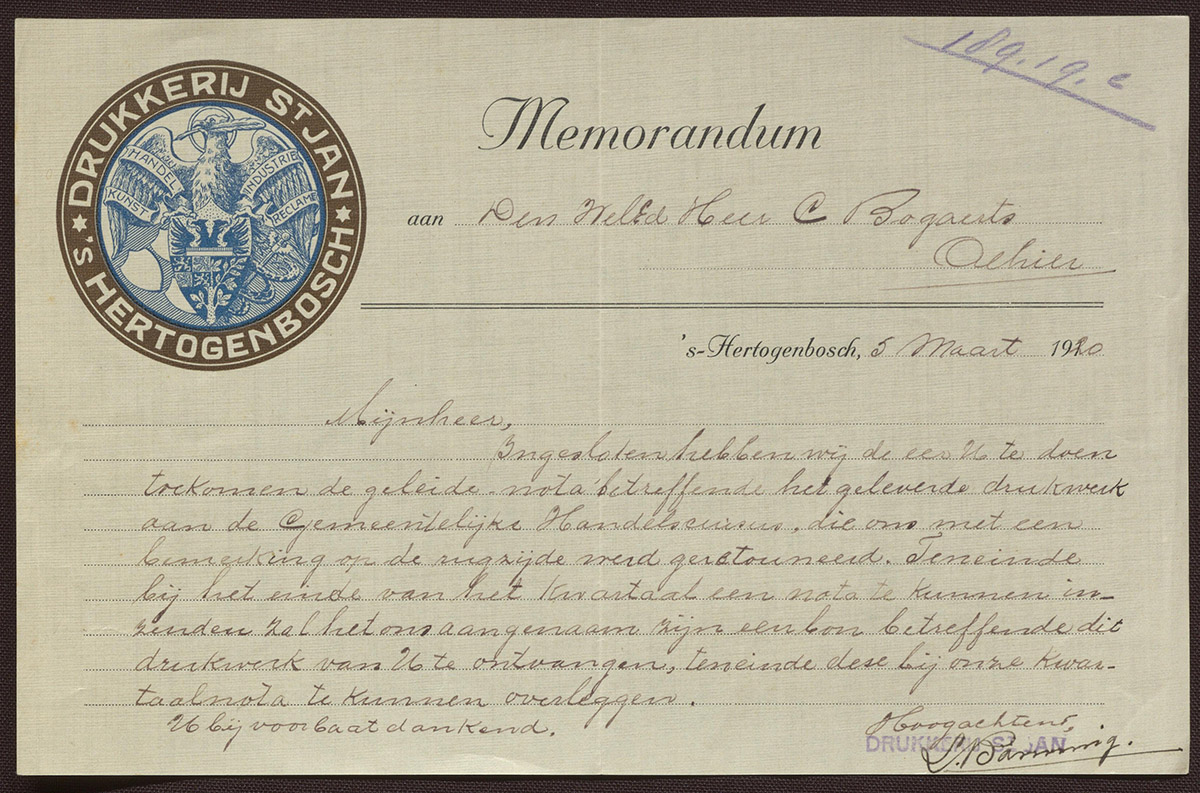 189.19.c
DRUKKERIJ ST JAN
's HERTOGENBOSCH
HANDEL
KUNST
INDUSTRIE
RECLAME
Memorandum
aan Den WelEd Heer C Bogaerts
Alhier
's-Hertogenbosch, 5 Maart 1920
Mijnheer,
Ingesloten hebben wij de eer U te doen
toekomen de geleide-nota betreffende het geleverde drukwerk
aan de Gemeentelijke Handelscursus, die ons met een
bemerking op de rugzijde werd geretouneerd. Teneinde
bij het einde van het kwartaal een nota te kunnen in-
zenden zal het ons aangenaam zijn een bon betreffende dit
drukwerk van U te ontvangen, teneinde dese bij onze kwar-
taalnota te kunnen overleggen.
U bij voorbaat dankend.
Hoogachtend,
DRUKKERIJ ST JAN